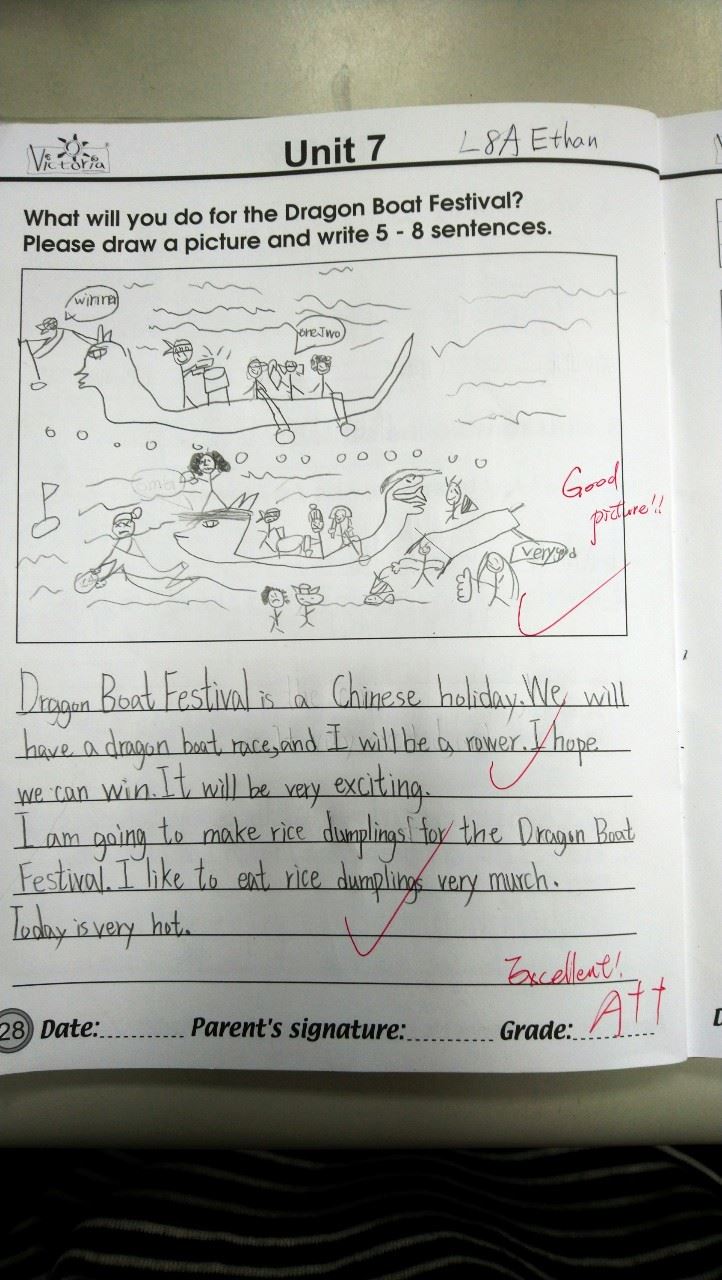 Victoria
Unit 7
L8A Ethan
What will you do for the Dragon Boat Festival?
Please draw a picture and write 5 - 8 sentences.
winner
one Two
Good
picture!!
very good
Dragon Boat Festival is a Chinese holiday. We will
have a dragon boat race, and I will be a rower. I hope
we can win. It will be very exciting.
I am going to make rice dumplings for the Dragon Boat
Festival. I like to eat rice dumplings very murch.
Today is very hot.
Excellent!
28 Date:.......... Parent's signature:.......... Grade:.......... A++